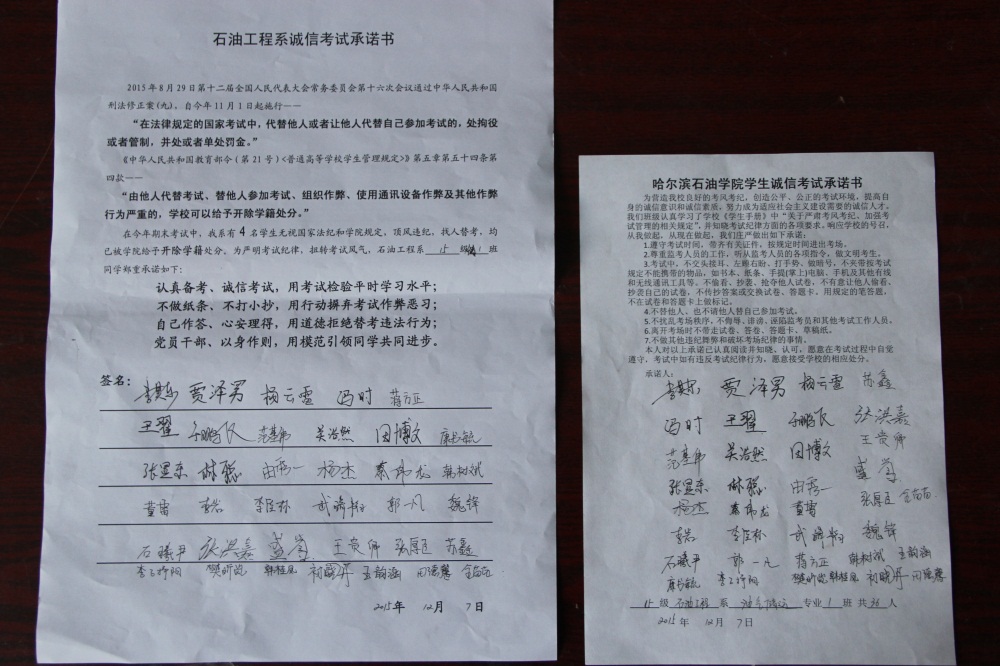 石油工程系诚信考试承诺书
2015年8月29日第十二届全国人民代表大会常务委员会第十六次会议通过中华人民共和国
刑法修正案(九)。自今年11月1日起施行——
“在法律规定的国家考试中，代替他人或者让他人代替自己参加考试的，处拘役
或者管制，并处或者单处罚金。”
《中华人民共和国教育部令（第21号）<普通高等学校学生管理规定>》第五章第五十四条第
四款——
“由他人代替考试、替他人参加考试、组织作弊、使用通讯设备作弊及其他作弊
行为严重的，学校可以给予开除学籍处分。”
在今年期末考试中，我系有4名学生无视国家法纪和学院规定，顶风违纪，找人替考，均
已被学院给予开除学籍处分。为严明考试纪律，扭转考试风气，石油工程系 15 级 1 班
同学郑重承诺如下：
认真备考、诚信考试，用考试检验平时学习水平；
不做纸条、不打小抄，用行动摒弃考试作弊恶习；
自己作答、心安理得，用道德拒绝替考违法行为；
党员干部、以身作则，用模范引领同学共同进步。
签名：
贾泽男 杨云雪 冯时 蒋方正
王翟 于鹏飞 范基伟 吴浩然 田博文 康长毓
张显东 林聪 由秀一 杨杰 秦伟龙 韩树斌
董雷 李臣林 武海利 郭一凡 魏锋
石曦尹 张洪嘉 盛嵩 王贵师 张厚臣 苏鑫
樊昕岚 韩桂凤 初晓丹 孟韵涵 闫德馨
2015年 12月 7日
哈尔滨石油学院学生诚信考试承诺书
为营造我校良好的考风考纪，创造公平、公正的考试环境，提高自
身的诚信意识和诚信素质，努力成为适应社会主义建设需要的诚信人才。
我们班级认真学习了学校《学生手册》中“关于严肃考风考纪、加强考
试管理的相关规定”，并知晓考试纪律方面的各项要求，响应学校的号召，
从我做起，从现在做起，我们庄严做出如下承诺：
1.遵守考试时间，带齐有关证件，按规定时间进出考场。
2.尊重监考人员的工作，听从监考人员的各项指令，做文明考生。
3.考试中，不交头接耳、左顾右盼、打手势、做暗号，不夹带按考试
规定不能携带的物品，如书本、纸条、手提(掌上)电脑、手机及其他有线
和无线通讯工具等。不偷看、抄袭、抢夺他人试卷，不有意让他人偷看、
抄袭自己的试卷，不传抄答案或交换试卷、答题卡。用规定的笔答题，
不在试卷和答题卡上做标记。
4.不替他人、也不请他人替自己参加考试。
5.不扰乱考场秩序，不侮辱、诽谤、诬陷监考员和其他考试工作人员。
6.离开考场时不带走试卷、答卷、答题卡、草稿纸。
7.不做其他违纪舞弊和破坏考场纪律的事情。
本人对以上承诺已认真阅读并知晓、认可，愿意在考试过程中自觉
遵守，考试中如有违反考试纪律行为，愿意接受学校的相应处分。
承诺人：
贾泽男 杨云雪 苏鑫
冯时 王翟 于鹏飞 张洪嘉
范基伟 吴浩然 田博文 王贵师
张显东 林聪 由秀一 盛嵩
杨杰 秦伟龙 董雷 张厚臣
李臣林 武海利 魏锋
石曦尹 郭一凡 蒋方正 韩树斌 孟韵涵
康长毓 樊昕岚 韩桂凤 初晓丹 闫德馨
15 级 石油工程 系 油气储运 专业 1 班 共 36 人
2015年 12月 7日